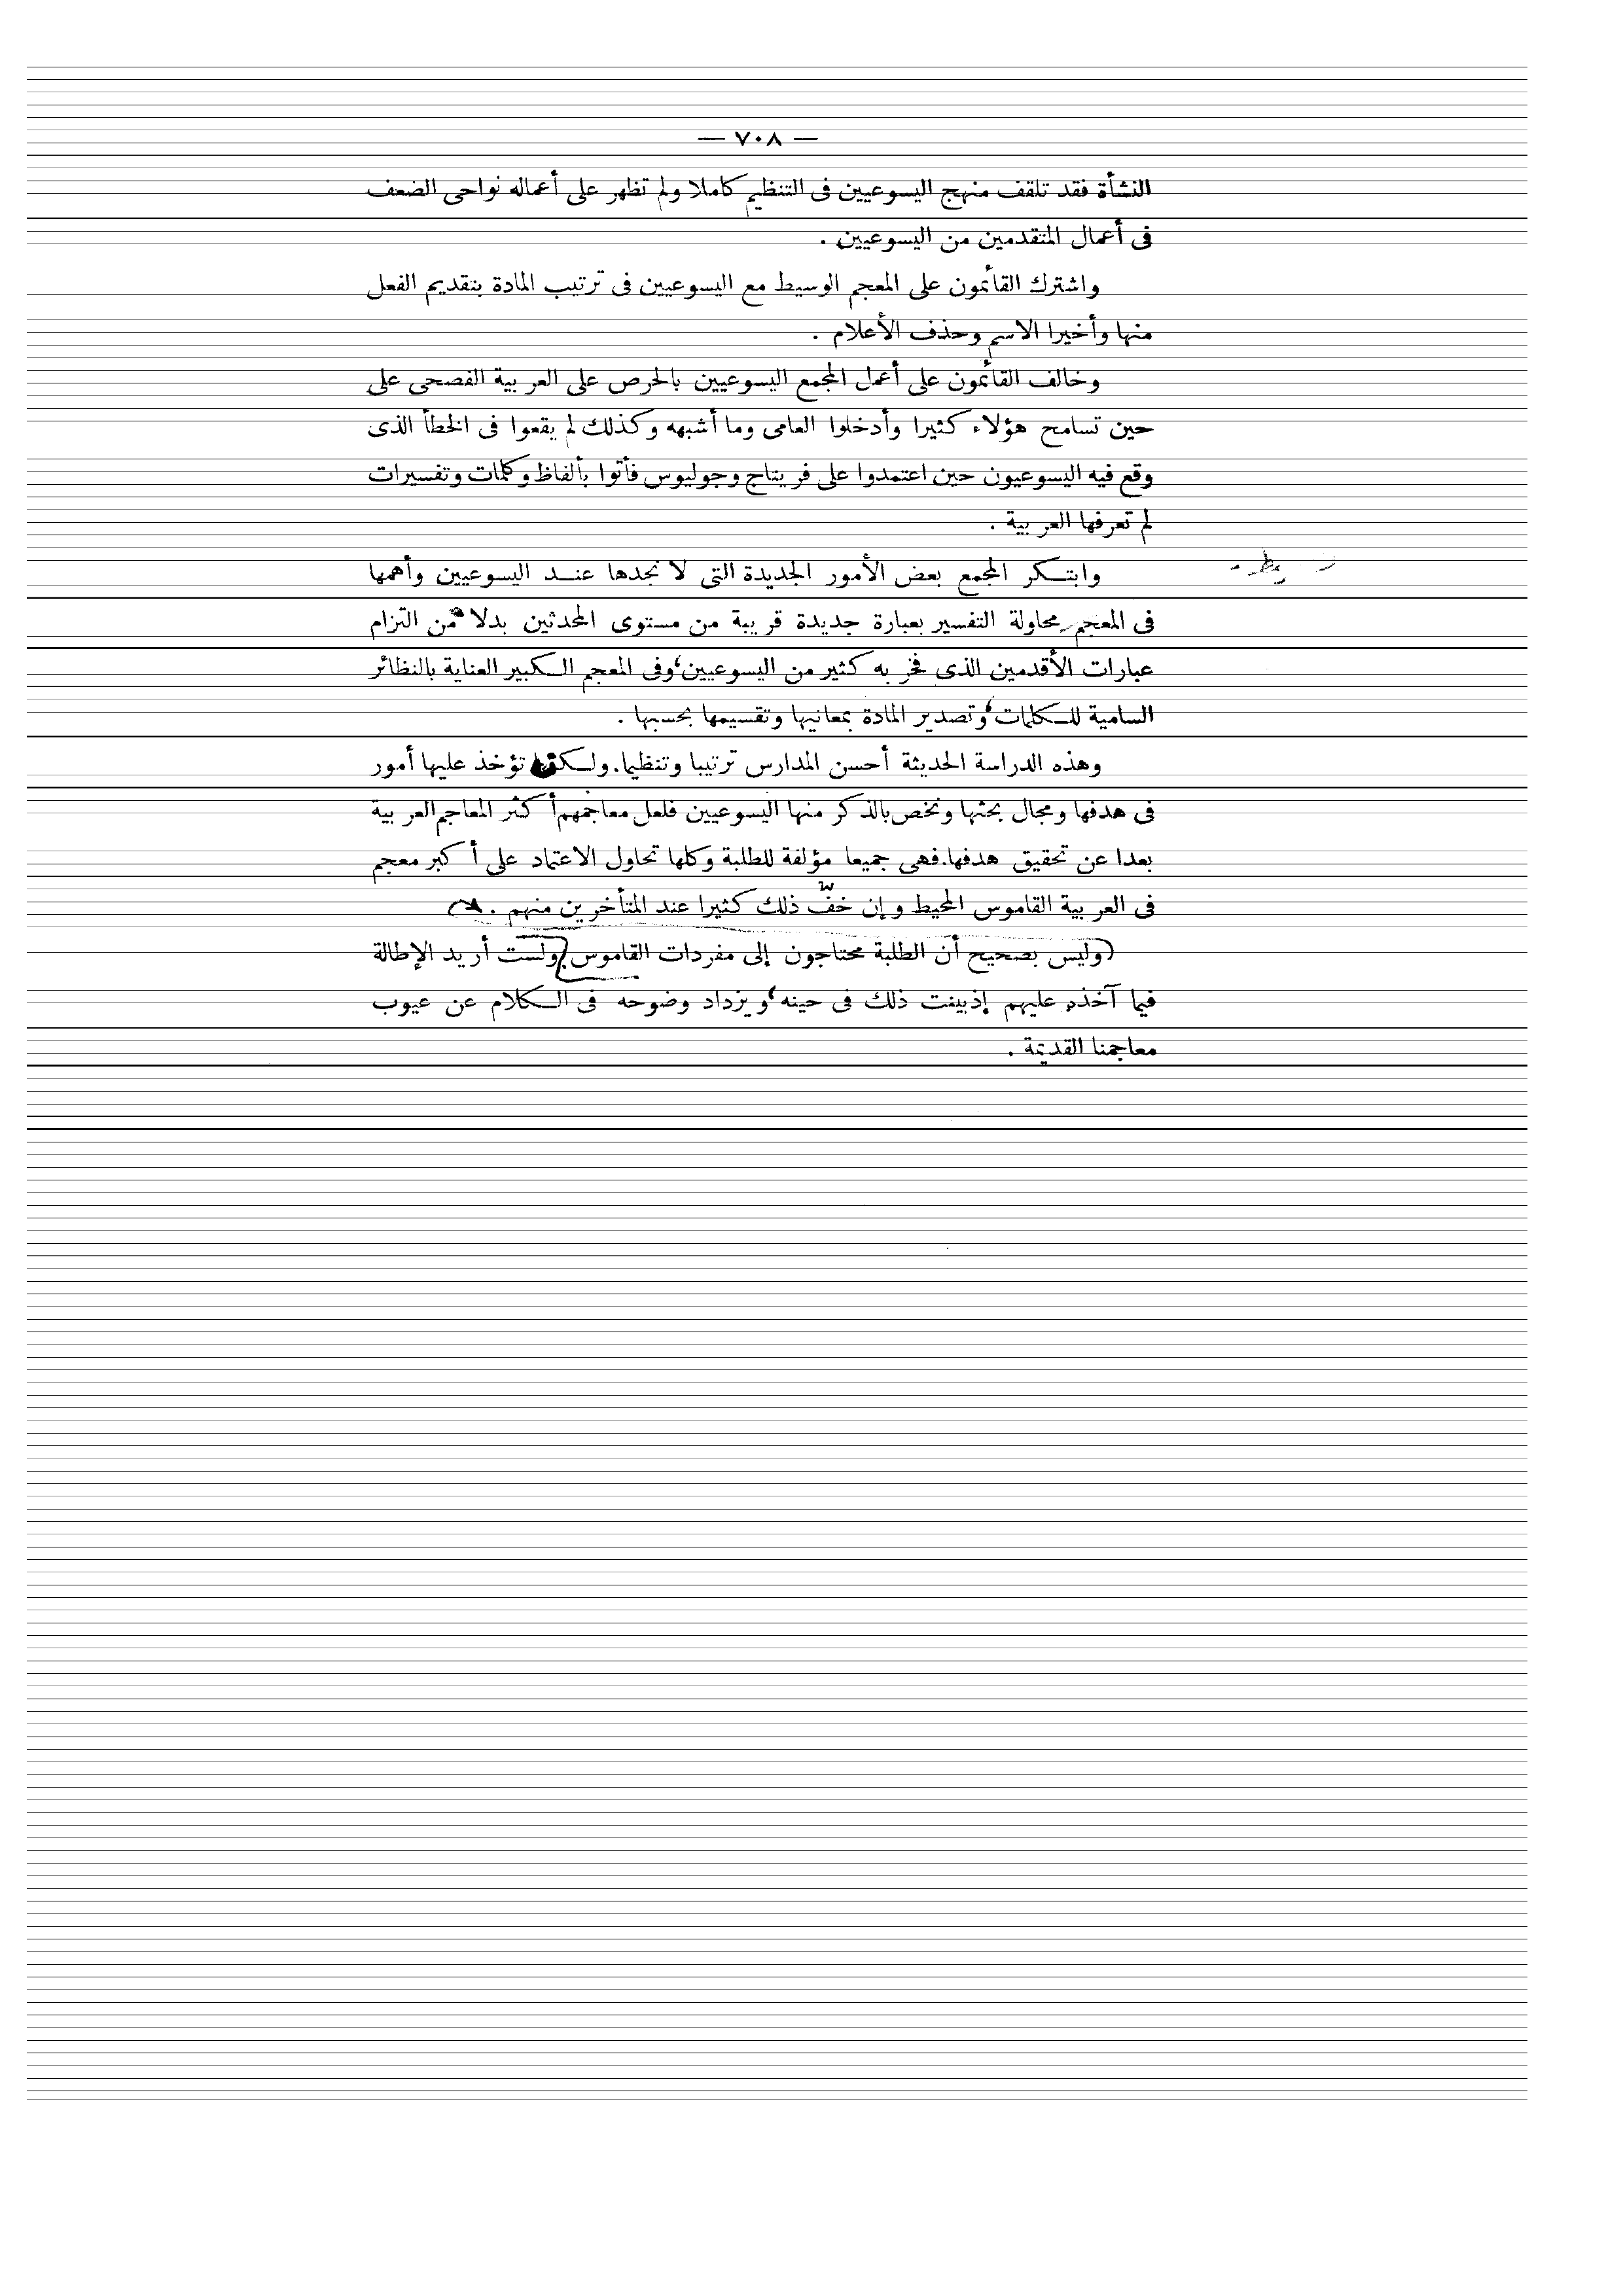 — ٧٠٨ —
النشأة فقد تلقف منهج اليسوعيين فى التنظيم كاملا ولم تظهر على أعماله نواحى الضعف
فى أعمال المتقدمين من اليسوعيين .
واشترك القائمون على المعجم الوسيط مع اليسوعيين فى ترتيب المادة بتقديم الفعل
منها وأخيرا الاسم وحذف الأعلام .
وخالف القائمون على أعمل المجمع اليسوعيين بالحرص على العربية الفصحى على
حين تسامح هؤلاء كثيرا وأدخلوا العامى وما أشبهه وكذلك لم يقعوا فى الخطأ الذى
وقع فيه اليسوعيون حين اعتمدوا على فريتاج وجوليوس فأتوا بألفاظ وكلمات وتفسيرات
لم تعرفها العربية .
وابتكر المجمع بعض الأمور الجديدة التى لا نجدها عند اليسوعيين وأهمها
فى المعجم محاولة التفسير بعبارة جديدة قريبة من مستوى المحدثين بدلا من التزام
عبارات الأقدمين الذى فخر به كثير من اليسوعيين، وفى المعجم الكبير العناية بالنظائر
السامية للكلمات، وتصدير المادة بمعانيها وتقسيمها بحسبها .
وهذه الدراسة الحديثة أحسن المدارس ترتيبا وتنظيما. ولكنها تؤخذ عليها أمور
فى هدفها ومجال بحثها ونخص بالذكر منها اليسوعيين فلعل معاجمهم أكثر المعاجم العربية
بعدا عن تحقيق هدفها. فهى جميعا مؤلفة للطلبة وكلها تحاول الاعتماد على أكبر معجم
فى العربية القاموس المحيط وإن خفّ ذلك كثيرا عند المتأخرين منهم .
(وليس بصحيح أن الطلبة محتاجون إلى مفردات القاموس) ولست أريد الإطالة
فيما آخذه عليهم إذ بينت ذلك فى حينه، ويزداد وضوحه فى الكلام عن عيوب
معاجمنا القديمة .